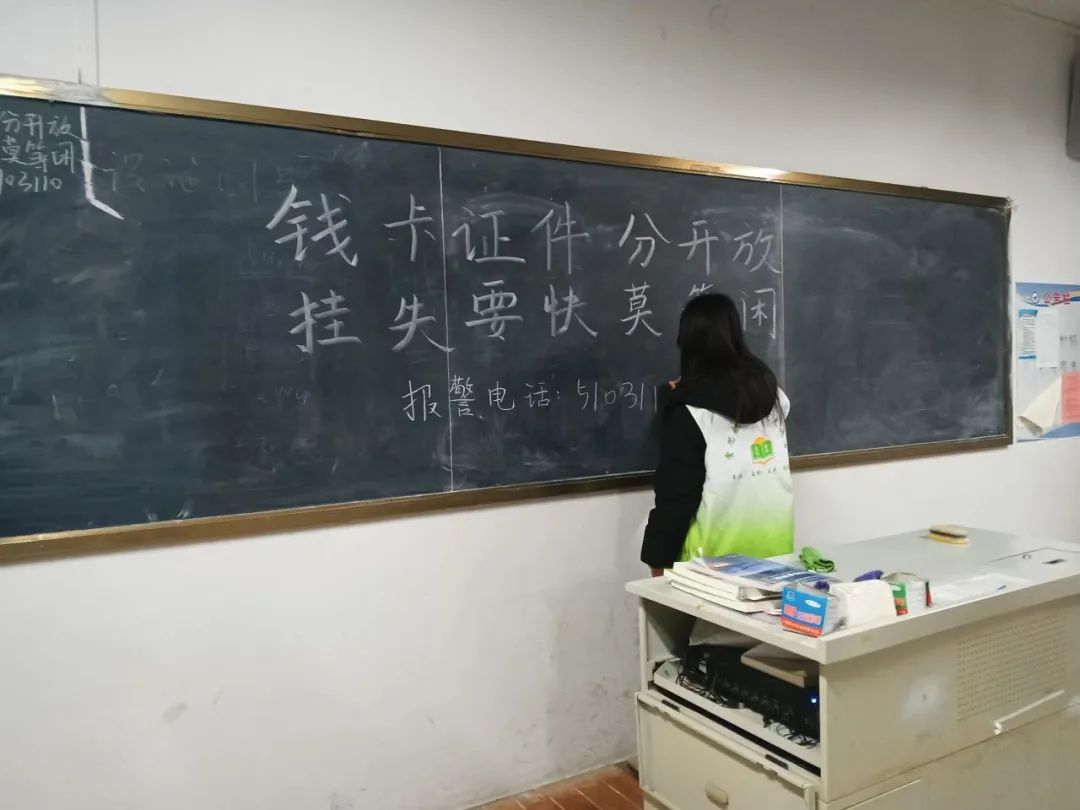 分开放
莫等闲
103110
钱卡证件分开放
挂失要快莫等闲
报警电话:510311